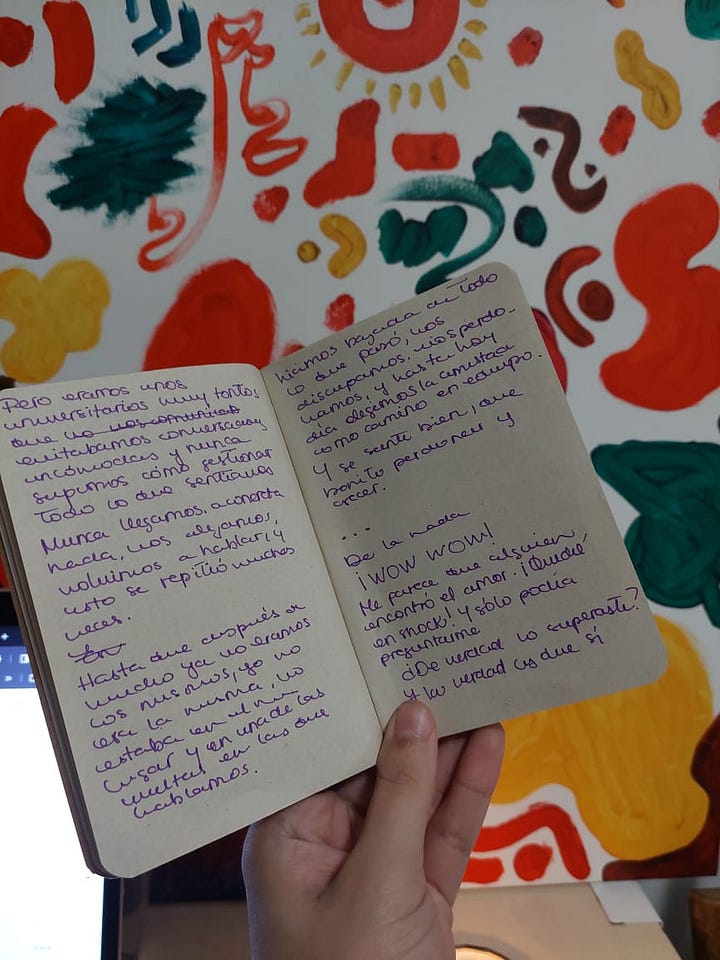 Pero eramos unos
universitarios muy tontos
que no nos comunicab
evitabamos conversaciones
incómodas y nunca
supimos cómo gestionar
todo lo que sentíamos
Nunca llegamos a concretar
nada, nos alejamos,
volvimos a hablar, y
esto se repitió muchas
veces.
Hasta que después de
mucho ya no eramos
los mismos, yo no
era la misma, no
estaba en el mismo
lugar y en una de las
vueltas en las que
hablamos.
hicimos bajada de todo
lo que pasó, nos
disculpamos, nos perdo-
namos, y hasta hoy
día elegimos la amistad
como camino en equipo.
Y se sintió bien, que
bonito perdonar y
crecer.
...
De la nada
¡WOW WOW!
Me parece que alguien
encontró el amor. ¡Quedé
en shock! Y sólo podía
preguntarme
¿De verdad lo superaste?
Y la verdad es que sí